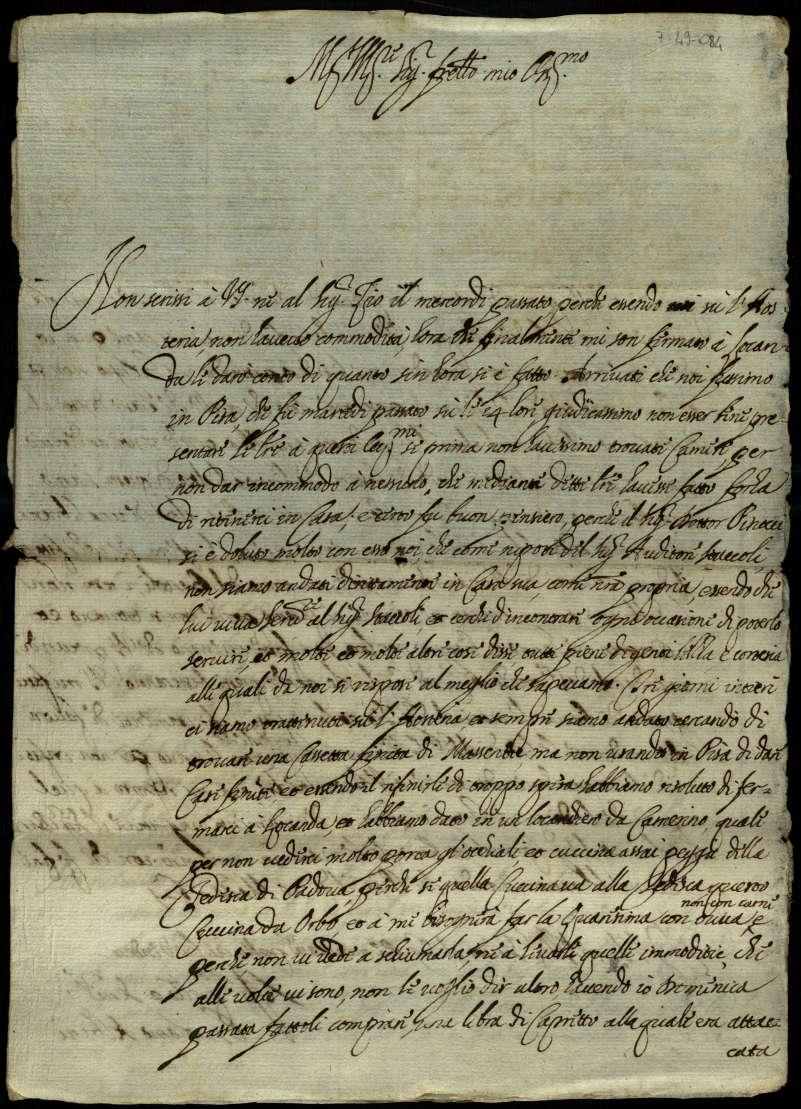 7-49-084
Sig.r frello mio
Non scrissi à VS. nè al Sig. Zio il mercordi passato perche essendo su l'Hos-
teria, non havevo commodità, hora che finalmente mi son firmato à Locan-
da li darò conto di quanto sin hora si è fatto. Arrivati che noi fussimo
in Pisa, che fù martedi passato sù le 24 hore giudicassimo non esser bene pre-
sentare le lre à questi se prima non havessimo trovato Camere per
non dar incommodo à nessuno, che mediante dette lre havesse fatto forza
di ritenerci in Casa. e certo fu buon pensiero, perche il Sig. Dottor
si è doluto molto con esso noi, che come nipoti del Sig. Auditore Staccoli,
non siamo andati dirittamente in Casa sua, come nra propria, essendo che
lui viva al Sig. Staccoli et cerchi d'incontrare ogni occasione di poterlo
servire, et molte et molte altre cose disse tutte piene di gentilezza e cortesia
alle quali da noi si rispose al meglio che sapevamo. Tre giorni intieri
ci siamo trattenuti sù l'Hosteria et sempre siamo andati cercando di
trovare una Casetta fornita di Masseritie ma non usando in Pisa di dare
Case fornite et essendo il fornirle di troppo spesa habbiamo risoluto di fer-
marci à Locanda, et habbiamo dato in un locandiero da Camerino, quale
per non vederci molto porta gl'occhiali et cuccina assai peggio della
Tedesca di Padova, perche se quella Cuccinava alla Tedesca questo
non con carne
Cuccina da Orbo, et à me bisognerà far la Quaresima con ouva e
perche non vi vede a schiumarla, nè à levarle quelle immoditie, che
alle volte vi sono, non le voglio dir altro havendo io Domenica
passata fattoli comprare una libra di Capretto alla quale era attac-
cata